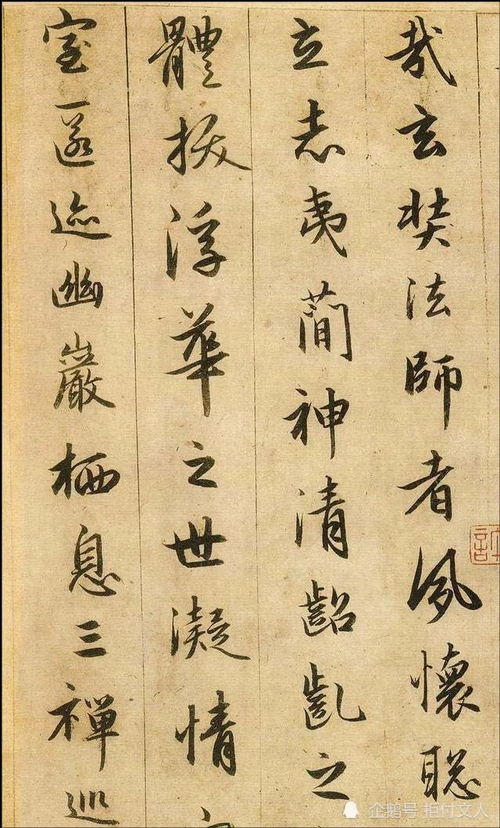 哉玄奘法師者夙懷聡
立志夷蕳神清齠齔之
體拔浮華之世凝情
室匿迹幽巖栖息三禪巡
企鹅号 拒付文人